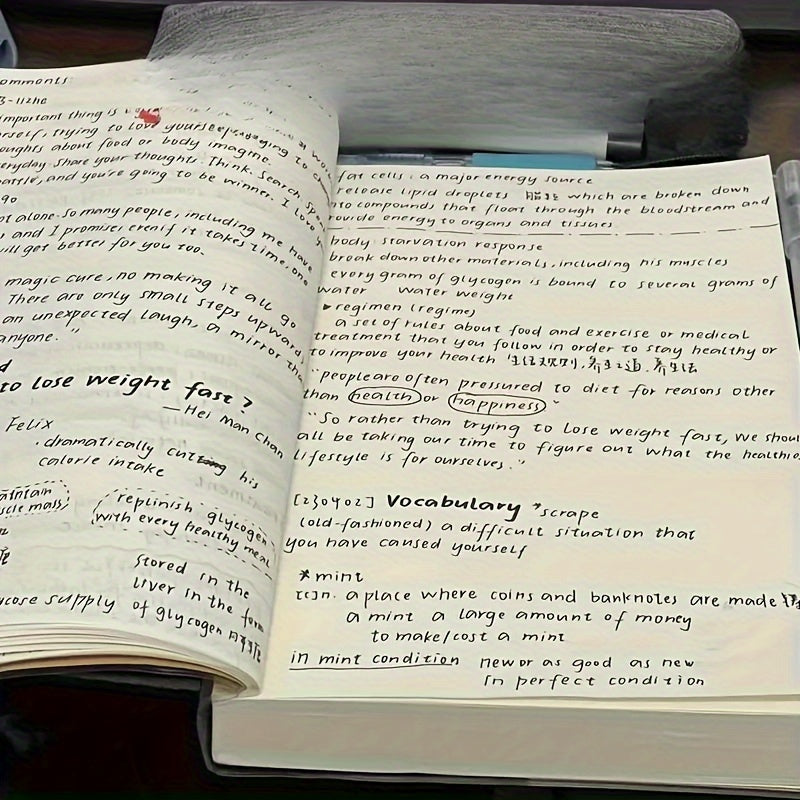 omments
important thing is
rself, trying to love yourself
oughts about food or body imagine.
everyday. Share your thoughts. Think. Search.
battle, and you're going to be winner. I love
go
ot alone. So many people, including me have
s and I promise, even if it takes time, one
will get better for you too.
magic cure, no making it all go
There are only small steps upward,
an unexpected laugh, a mirror tha
anyone."
to lose weight fast?
—Hei Man Chan
Felix
·dramatically cutting his
calorie intake
aintain
scle mass)
replinish glycogen
with every healthy meal
Stored in the
liver in the form
ucose supply of glycogen
fat cells : a major energy source
release lipid droplets which are broken down
into compounds that float through the bloodstream and
rovide energy to organs and tissues.
body starvation response
break down other materials, including his muscles
every gram of glycogen is bound to several grams of
water water weight
▸regimen (regime)
a set of rules about food and exercise or medical
treatment that you follow in order to stay healthy or
to improve your health 生活规则,养生之道,养生法
"people are often pressured to diet for reasons other
than health or happiness"
"So rather than trying to lose weight fast, we shoul
all be taking our time to figure out what the healthie
lifestyle is for ourselves."
[230402] Vocabulary *scrape
(old-fashioned) a difficult situation that
you have caused yourself
*mint
[c]n. a place where coins and banknotes are made
a mint a large amount of money
to make/cost a mint
in mint condition new or as good as new
in perfect condition